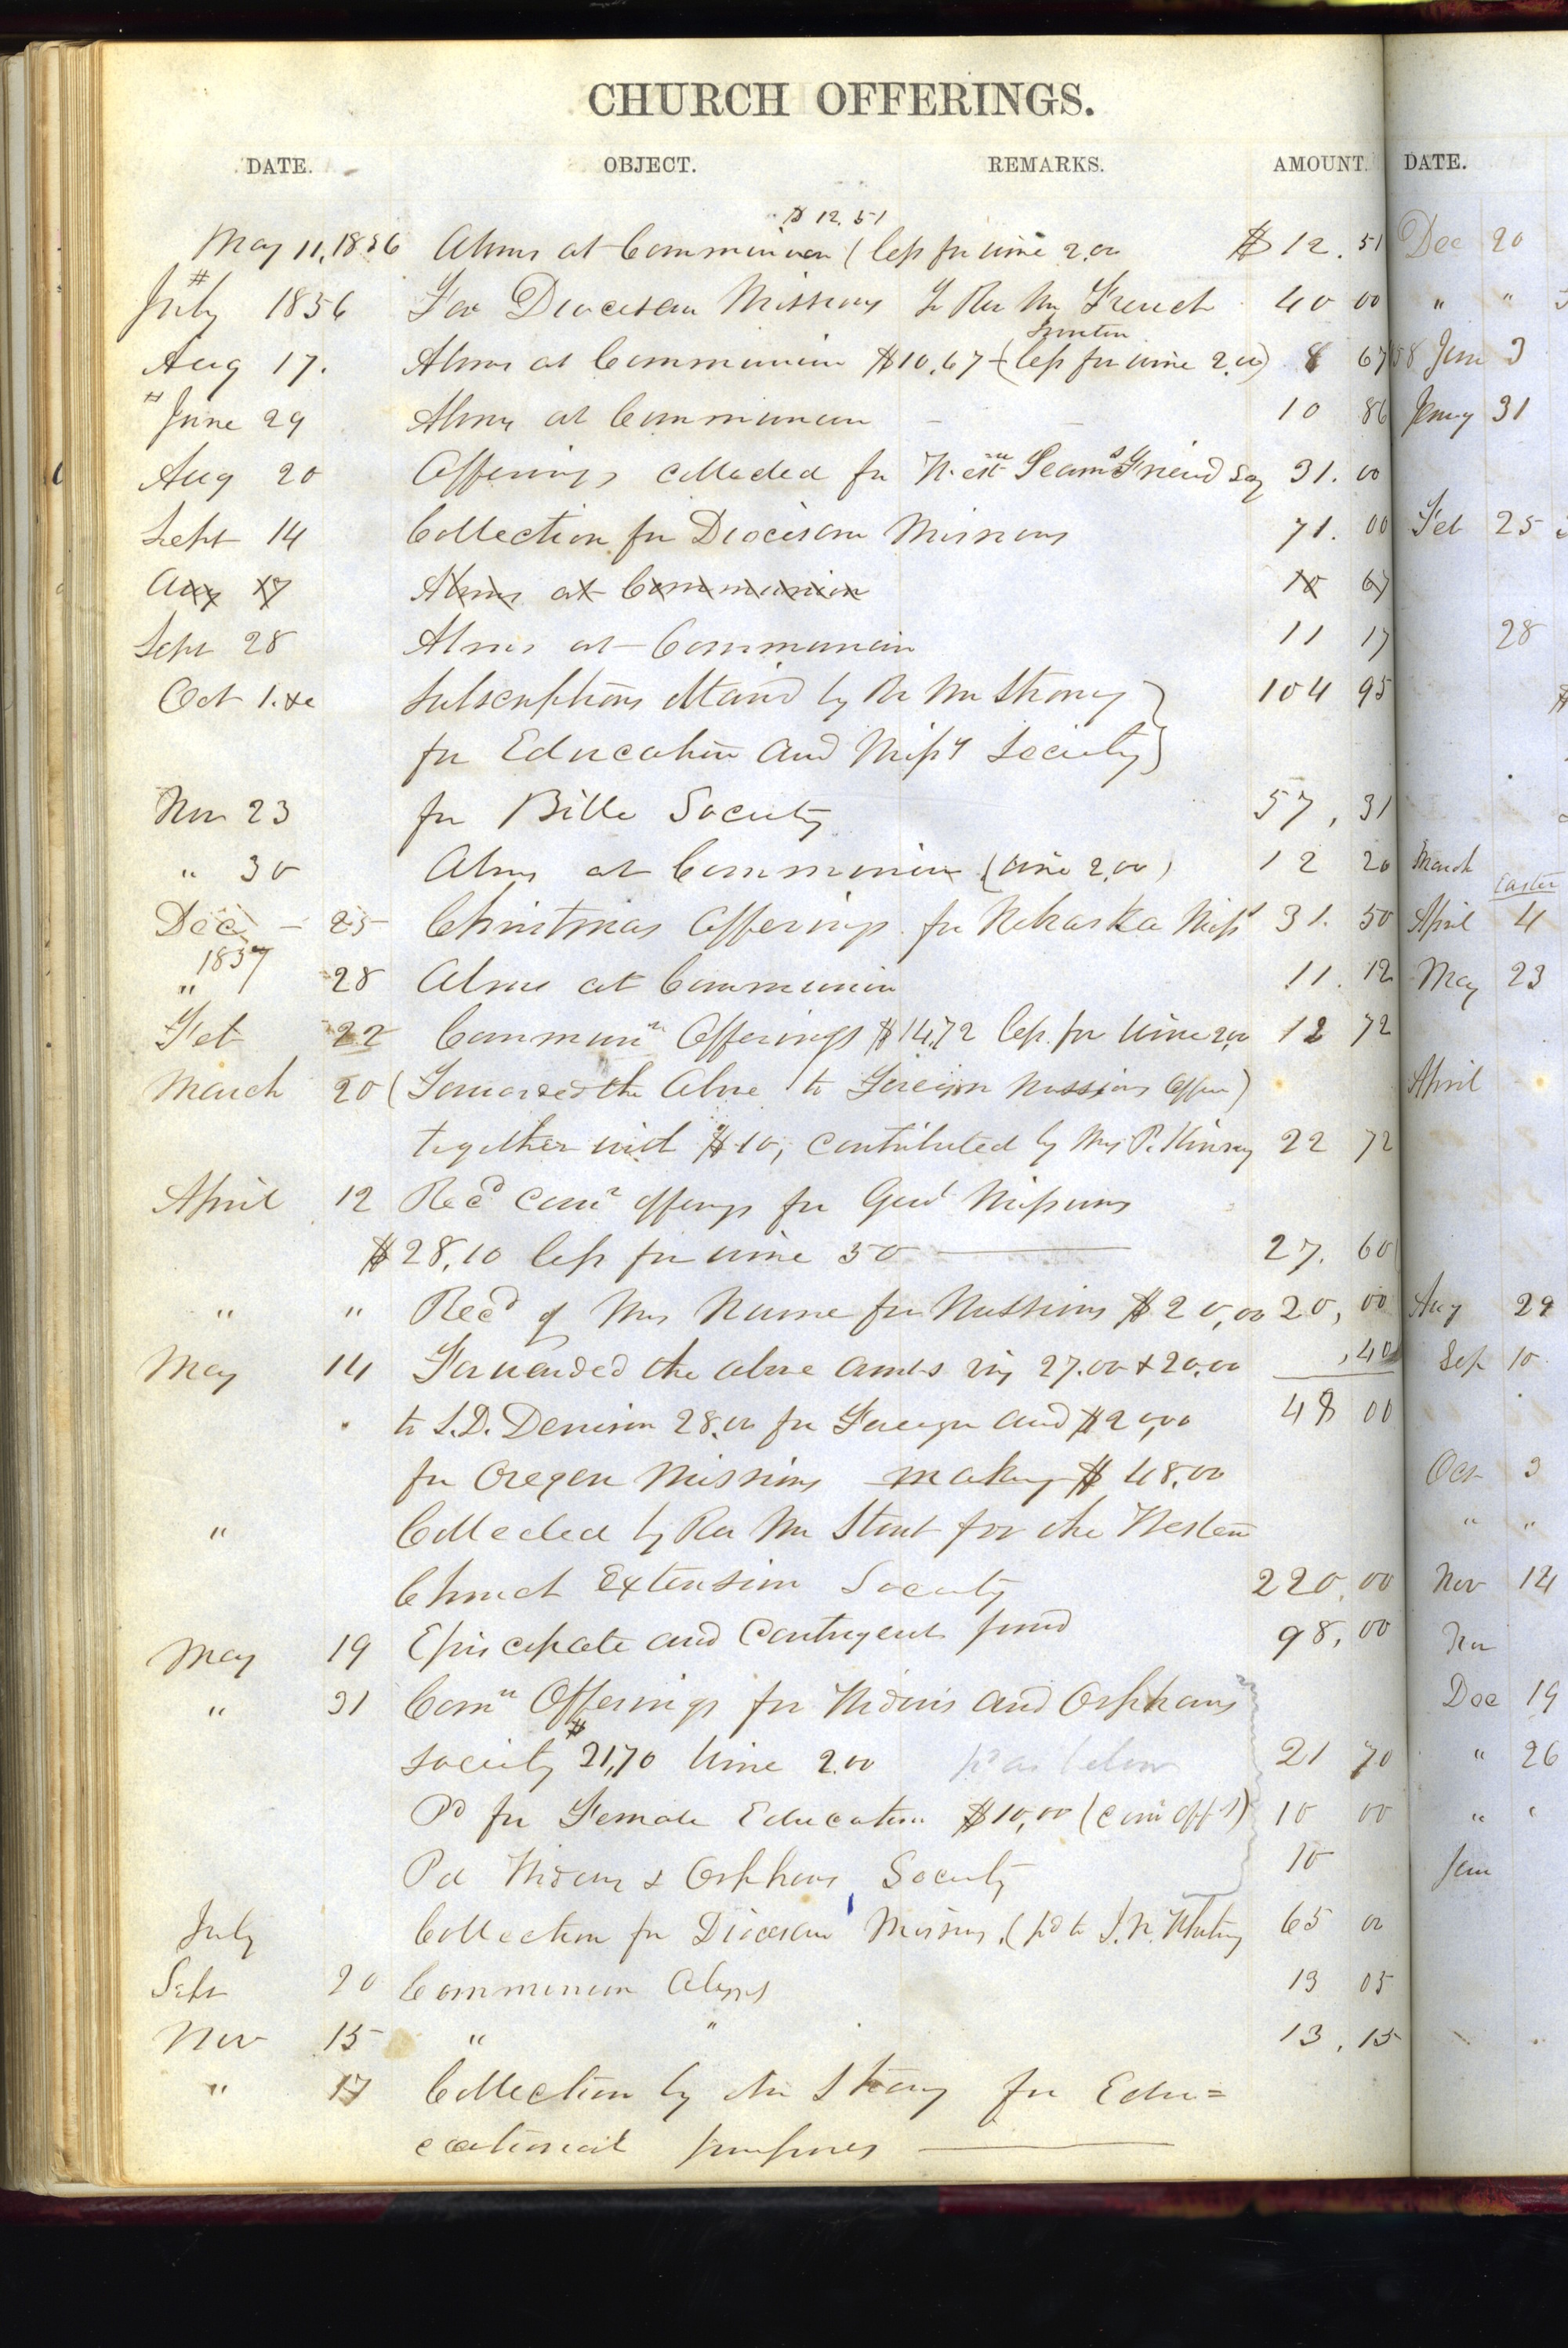 CHURCH OFFERINGS.
DATE. OBJECT. REMARKS. AMOUNT. DATE.
$ 12.51
May 11, 1856 Alms at Communion (less for wine 2.00 $ 12.51 Dec 20
July 1856 For Diocesan Missions to Rev Mr French 40 00 " "
Aug 17. Alms at Communion $10.67 (less for wine 2.00) 8 67 58 Jan 3
June 29 Alms at Communion 10 86 Jany 31
Aug 20 Offerings collected for Seam's Friend Soc 31.00
Sept 14 Collection for Diocesan Missions 71.00 Feb 25
Aug 17 Alms at Communion 10 67
Sept 28 Alms at Communion 11 17 28
Oct 1. &c Subscriptions obtaind by Rev Mr Strong 104 95
for Education and Missy Society
Nov 23 for Bible Society 57,31
" 30 Alms at Communion (wine 2.00) 12 20 March
Easter
Dec - 25 Christmas Offerings for Nebraska Miss 31.50 April 4
1857
" 28 Alms at Communion 11.12 May 23
Feb 22 Communn Offerings $14.72 less for wine 2.00 12 72
March 20 (Forwarded the above to Foreign Missions Office) April
together with $10, contributed by Mrs P. Kinney 22 72
April 12 Recd Comn offerings for Missions
$28,10 less for wine 50 27.60
" " Recd of Mrs for Missions $20,00 20,00 Aug 29
May 14 Forwarded the above amts viz 27.00 & 20.00 ,40 Sep 10
to S.D. Denison 28.00 for Foreign and $20,00 48 00
for Oregon Missions making $ 48.00 Oct 3
" Collected by Rev Mr Stout for the Western " "
Church Extension Society 220.00 Nov 14
May 19 Episcopate and Contingent fund 98,00 Nov
" 31 Comn Offerings for Widows and Orphans Dec 19
society $21,70 Wine 2.00 pd as below 21 70 " 26
Pd for Female Education $10,00 (com offs) 10 00 "
Pd Widows & Orphans Society 10 Jan
July Collection for Diocesan Missions (pd to J.N. Whiting 65 00
Sept 20 Communion Alms 13 05
Nov 15 " " 13,15
" 17 Collection by Mr Strong for Edu=
cational purposes